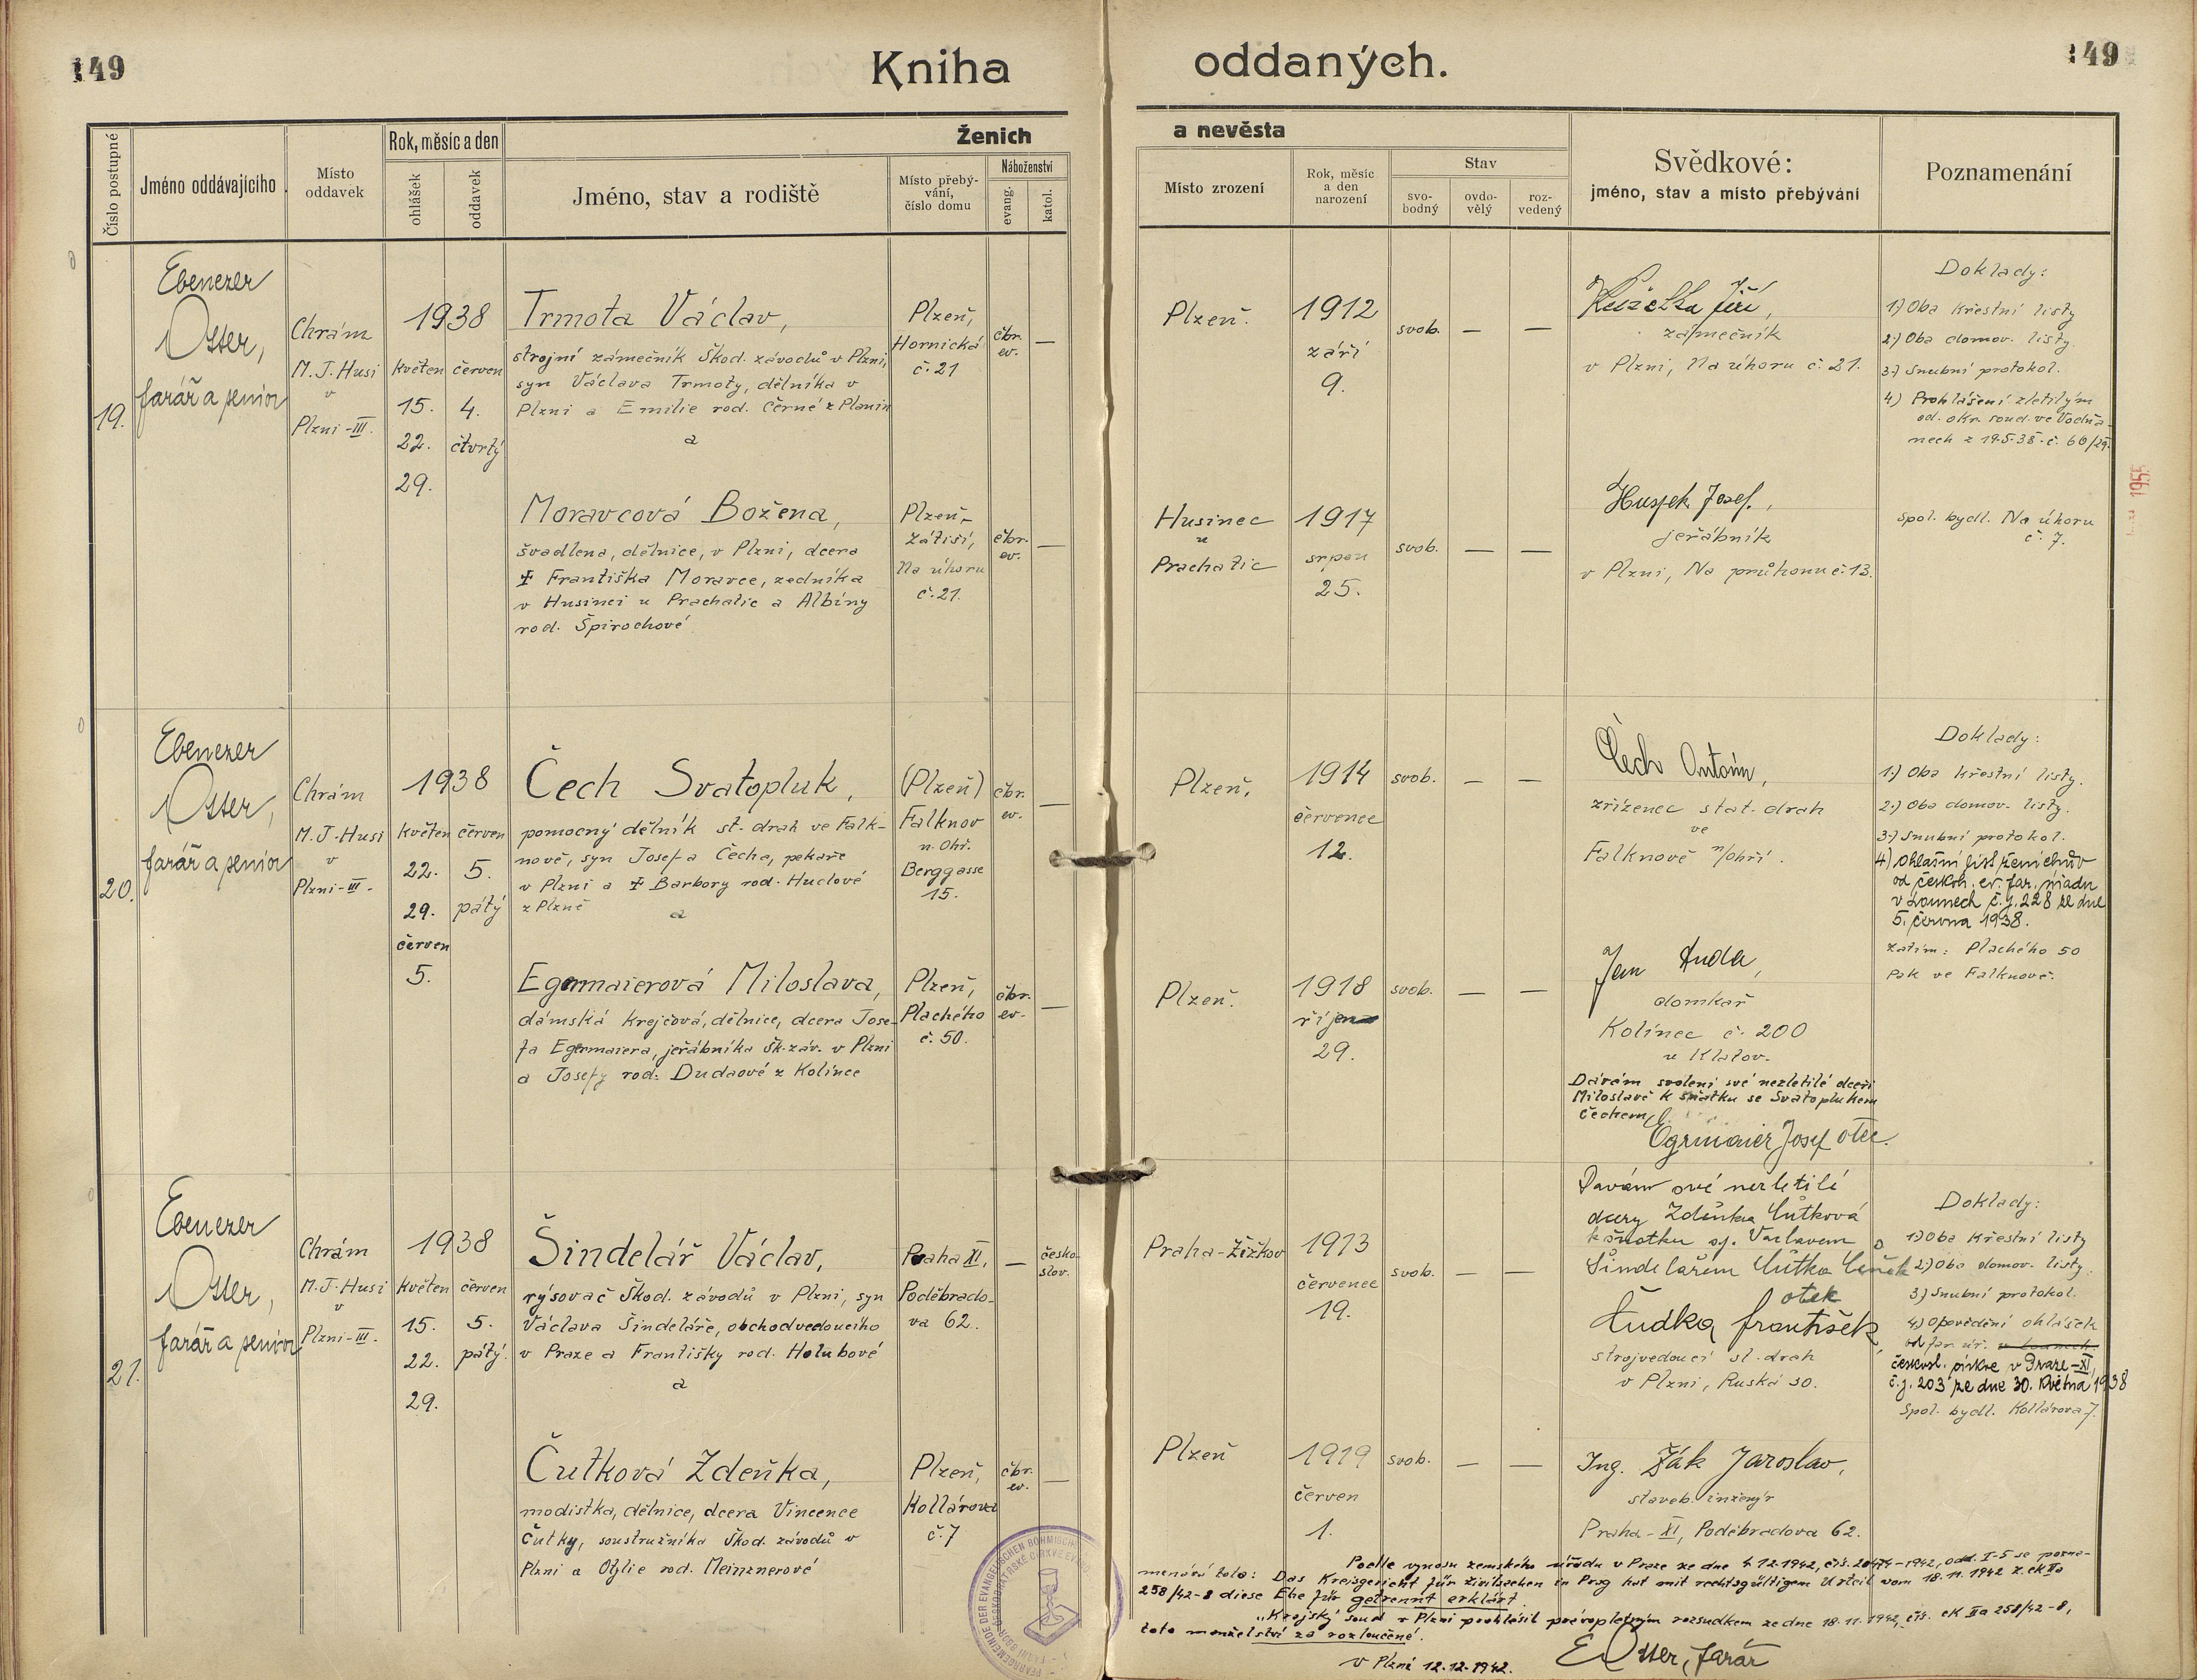 149
Kniha
oddaných.
149
Číslo postupné
Jméno oddávajícího
Místo
oddavek
Rok, měsíc a den
ohlášek
oddavek
Ženich
Jméno, stav a rodiště
Místo přebý-
vání,
číslo domu
Náboženství
evang.
katol.
a nevěsta
Místo zrození
Rok, měsíc
a den
narození
Stav
svo-
bodný
ovdo-
vělý
roz-
vedený
Svědkové:
jméno, stav a místo přebývání
Poznamenání
19.
Ebenezer
Otter,
farář a senior
Chrám
M. J. Husi
v
Plzni-III.
1938
květen
15.
22.
29.
červen
4.
čtvrtý
Trmota Václav,
strojní zámečník Škod. závodů v Plzni,
syn Václava Trmoty, dělníka v
Plzni a Emilie rod. Černé z Planin
a
Plzeň,
Hornická
č. 21
čbr.
ev.
—
Plzeň.
1912
září
9.
svob.
—
—
Kuželka Jiří,
zámečník
v Plzni, Na úhoru č. 21.
Doklady:
1.) Oba křestní listy
2.) Oba domov. listy.
3.) Snubní protokol.
4) Prohlášení zletilým
od. okr. soud. ve Vodňa-
nech z 19.5.38.
Moravcová Božena,
švadlena, dělnice, v Plzni, dcera
✝ Františka Moravce, zedníka
v Husinci u Prachatic a Albíny
rod. Špirochové
Plzeň-
Zátiší,
Na úhoru
č. 21.
čbr.
ev.
—
Husinec
u
Prachatic
1917
srpen
25.
svob.
—
—
Josef,
jeřábník
v Plzni, Na průhonu č. 13.
Spol. bydl. Na úhoru
č. 7.
1955
20.
Ebenezer
Otter,
farář a senior
Chrám
M. J. Husi
v
Plzni-III.
1938
květen
22.
29.
červen
5.
červen
5.
pátý
Čech Svatopluk,
pomocný dělník st. drah ve Falk-
nově, syn Josefa Čecha, pekaře
v Plzni a ✝ Barbory rod. Huclové
z Plzně
a
(Plzeň)
Falknov
n. Ohř.
Berggasse
15.
čbr.
ev.
—
Plzeň,
1914
červenec
12.
svob.
—
—
Čech Antonín,
zřízenec stat. drah
ve
Falknově n/Ohří.
Doklady:
1.) Oba křestní listy.
2.) Oba domov. listy.
3.) Snubní protokol.
4) Ohlašní list ženichův
od českobr. ev. far. úřadu
v Lounech č. j. 228 ze dne
5. června 1938.
zatím: Plachého 50
pak ve Falknově.
Egermaierová Miloslava,
dámská krejčová, dělnice, dcera Jose-
fa Egermaiera, jeřábníka Šk. záv. v Plzni
a Josefy rod. Dudaové z Kolince
Plzeň,
Plachého
č. 50.
čbr.
ev.
—
Plzeň.
1918
říjen
29.
svob.
—
—
Jan Duda,
domkař
Kolinec č. 200
u Klatov.
Dávám svolení své nezletilé dceři
Miloslavě k sňatku se Svatoplukem
Čechem
Egrmaier Josef otec.
21.
Ebenezer
Otter,
farář a senior
Chrám
M. J. Husi
v
Plzni-III.
1938
květen
15.
22.
29.
červen
5.
pátý.
Šindelář Václav,
rýsovač Škod. závodů v Plzni, syn
Václava Šindeláře, obchodvedoucího
v Praze a Františky rod. Holubové
a
Praha XI,
Poděbrado-
va 62.
—
česko-
slov.
Praha-Žižkov
1913
červenec
19.
svob.
—
—
Davám své nezletilé
dcery Zdeňka Čutková
k sňatku sy. Vaclavem
Šindelařem Čutka Čeněk
otek
Čudka František,
strojvedoucí st. drah
v Plzni, Ruská 30.
Doklady:
1.) Oba křestní listy
2.) Oba domov. listy.
3.) Snubní protokol.
4.) Opovědění ohlášek
od far. úř. v Lounech
českosl. církve v Praze-XI,
č. j. 203 ze dne 30. května 1938
Spol. bydl. Kollárova 7.
Čutková Zdeňka,
modistka, dělnice, dcera Vincence
Čutky, soustružníka Škod. závodů v
Plzni a Otylie rod. Meinznerové
Plzeň,
Kollárova
č. 7
čbr.
ev.
—
Plzeň
1919
červen
1.
svob.
—
—
Ing. Žák Jaroslav,
staveb. inženýr
Praha-XI, Poděbradova 62.
Podle výnosu zemského úřadu v Praze ze dne 4.12.1942, odd. I-5 se pozna-
menává toto: Das Kreisgericht für Zivilsachen in Prag hat mit rechtsgültigem Urteil vom 18.11.1942 z. cK IIa
258/42-8 diese Ehe für getrennt erklärt.
„Krajský soud v Plzni prohlásil právoplatným rozsudkem ze dne 18.11.1942, čís. cK IIa 258/42-8,
toto manželství za rozloučené.
v Plzni 12.12.1942.
E Otter, farář